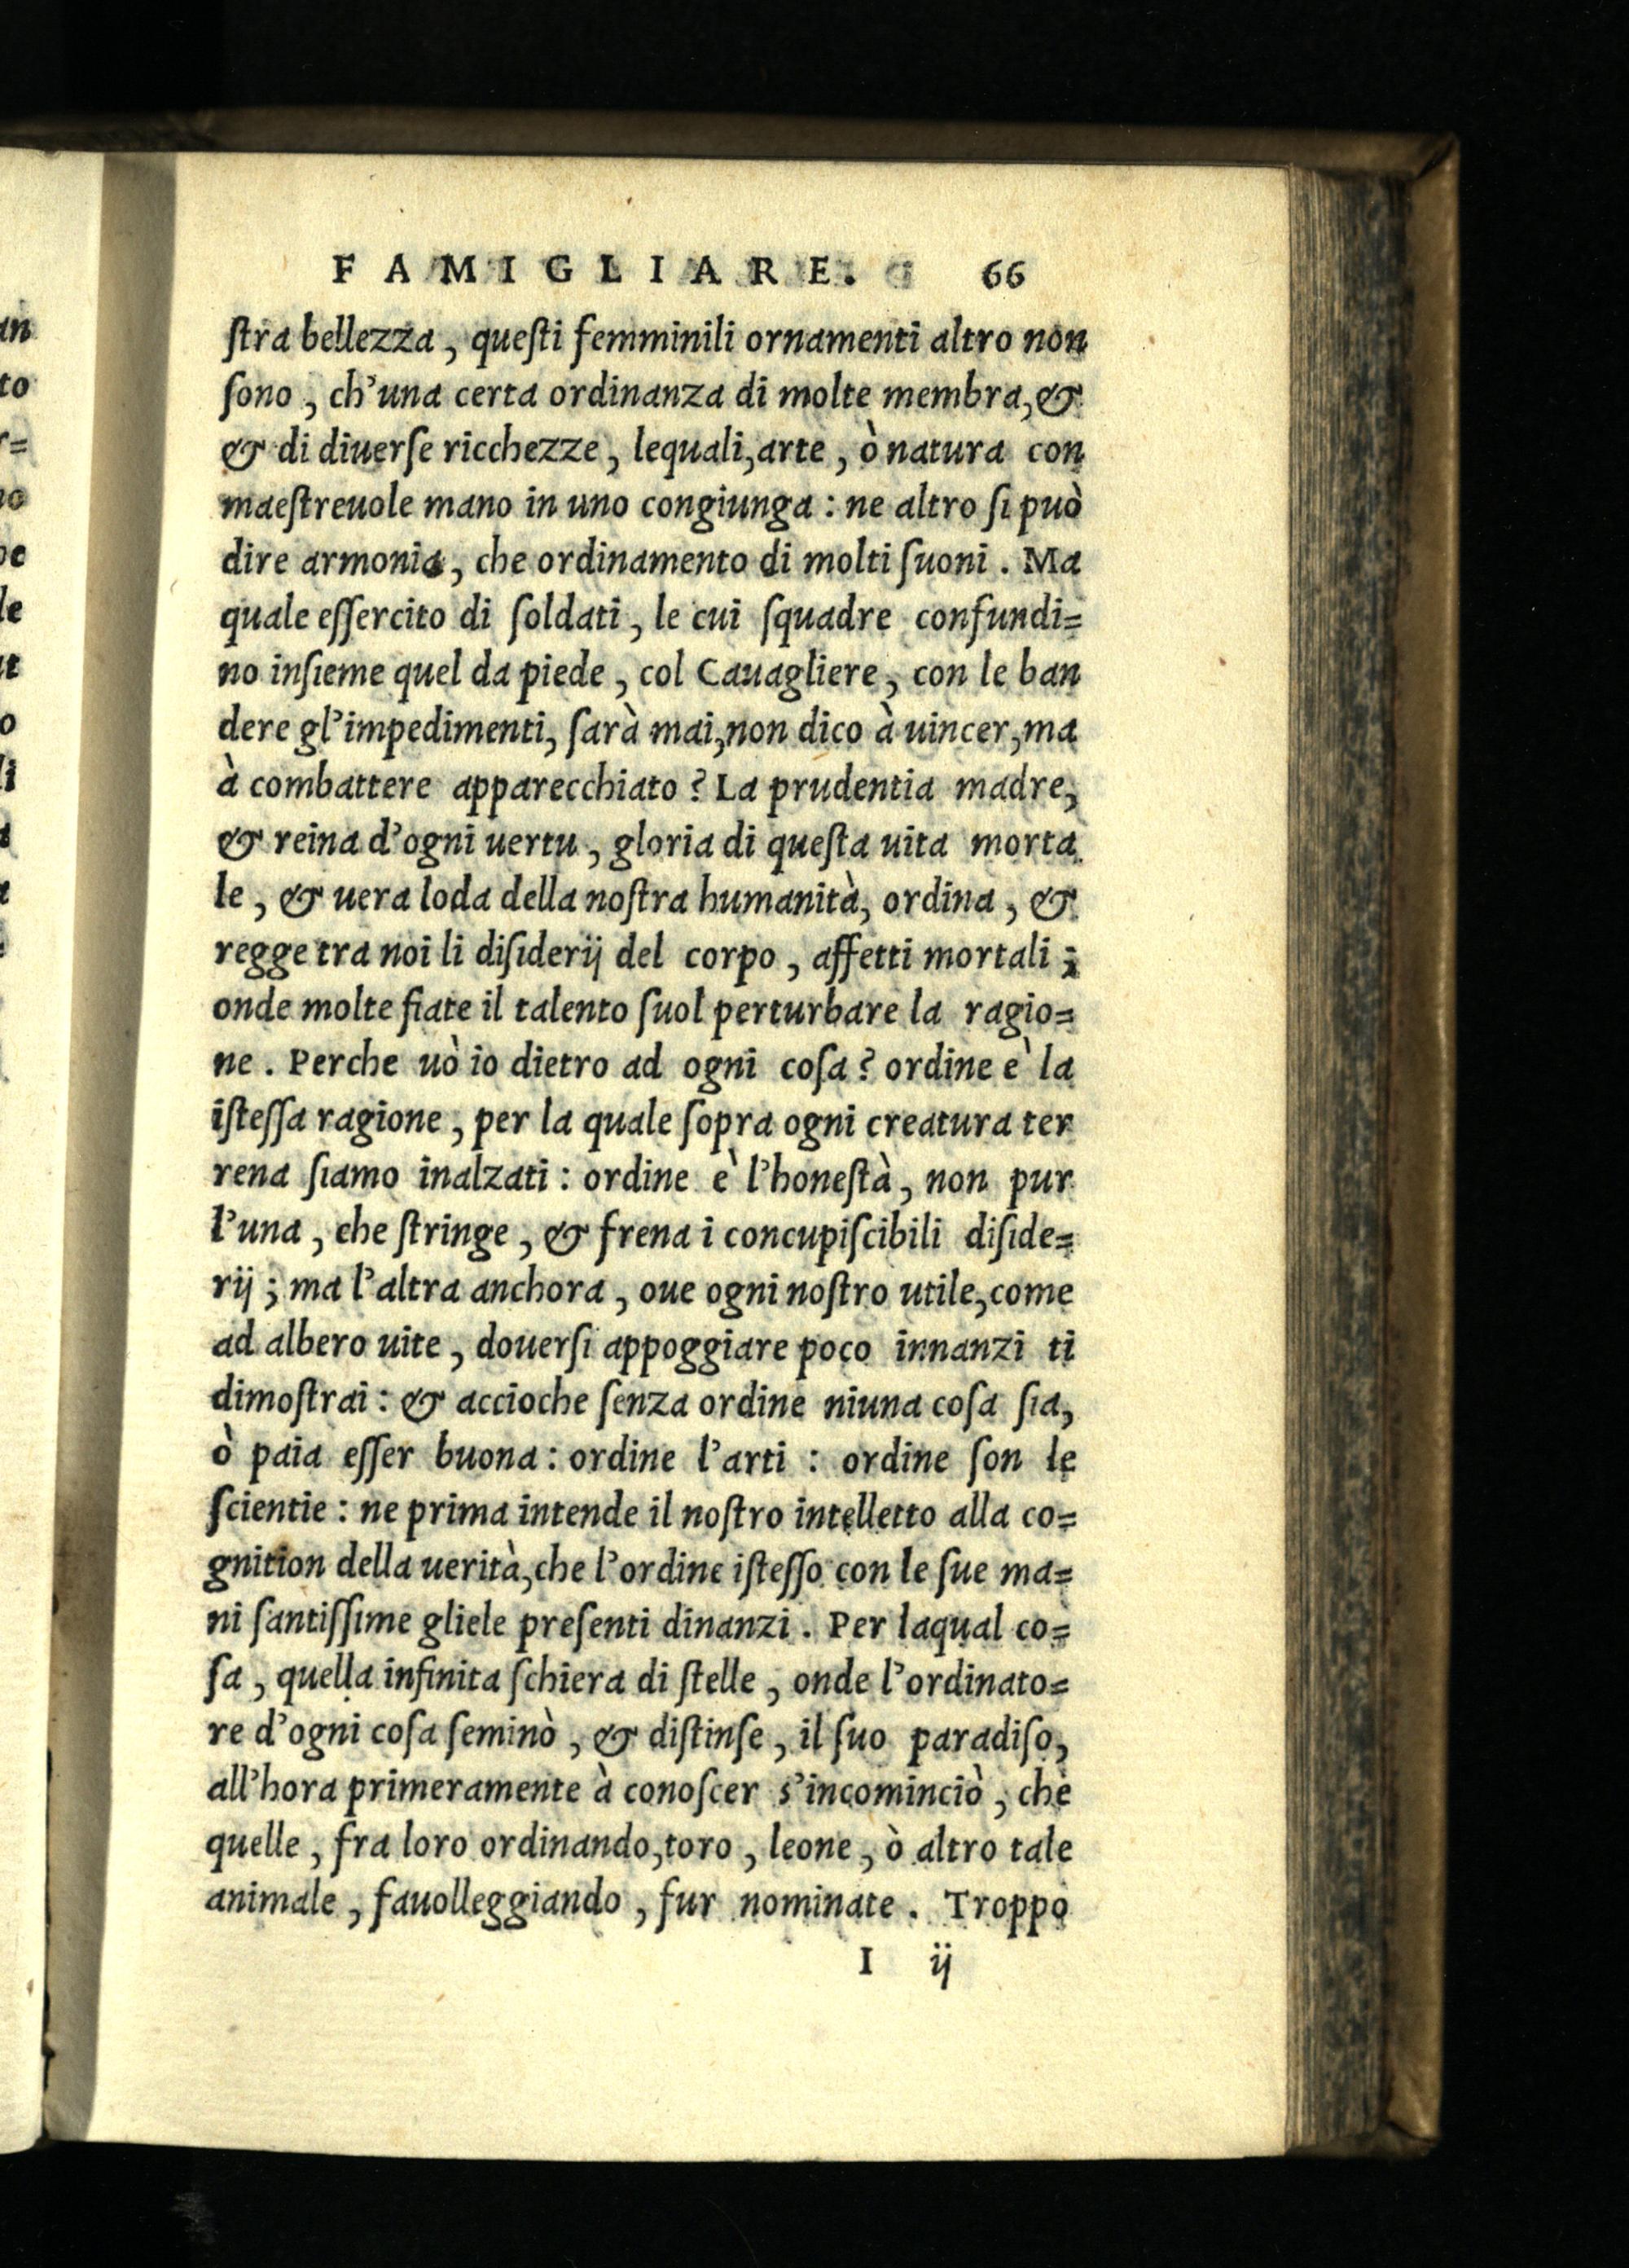 FAMIGLIARE. 66
ſtra bellezza, queſti femminili ornamenti altro non
ſono, ch'una certa ordinanza di molte membra, &
& di diuerſe ricchezze, lequali, arte, ò natura con
maeſtreuole mano in uno congiunga: ne altro ſi può
dire armonia, che ordinamento di molti ſuoni. Ma
quale eſſercito di ſoldati, le cui ſquadre confundi=
no inſieme quel da piede, col Cauagliere, con le ban
dere gl'impedimenti, ſarà mai, non dico à uincer, ma
à combattere apparecchiato? La prudentia madre,
& reina d'ogni uertu, gloria di queſta uita morta
le, & uera loda della noſtra humanità, ordina, &
regge tra noi li diſiderij del corpo, affetti mortali;
onde molte fiate il talento ſuol perturbare la ragio=
ne. Perche uò io dietro ad ogni coſa? ordine è la
iſteſſa ragione, per la quale ſopra ogni creatura ter
rena ſiamo inalzati: ordine è l'honeſtà, non pur
l'una, che ſtringe, & frena i concupiſcibili diſide=
rij; ma l'altra anchora, oue ogni noſtro utile, come
ad albero uite, douerſi appoggiare poco innanzi ti
dimoſtrai: & accioche ſenza ordine niuna coſa ſia,
ò paia eſſer buona: ordine l'arti: ordine ſon le
ſcientie: ne prima intende il noſtro intelletto alla co=
gnition della uerità, che l'ordine iſteſſo con le ſue ma=
ni ſantiſſime gliele preſenti dinanzi. Per laqual co=
ſa, quella infinita ſchiera di ſtelle, onde l'ordinato=
re d'ogni coſa ſeminò, & diſtinſe, il ſuo paradiſo,
all'hora primeramente à conoſcer s'incominciò, che
quelle, fra loro ordinando, toro, leone, ò altro tale
animale, fauolleggiando, fur nominate. Troppo
I ij